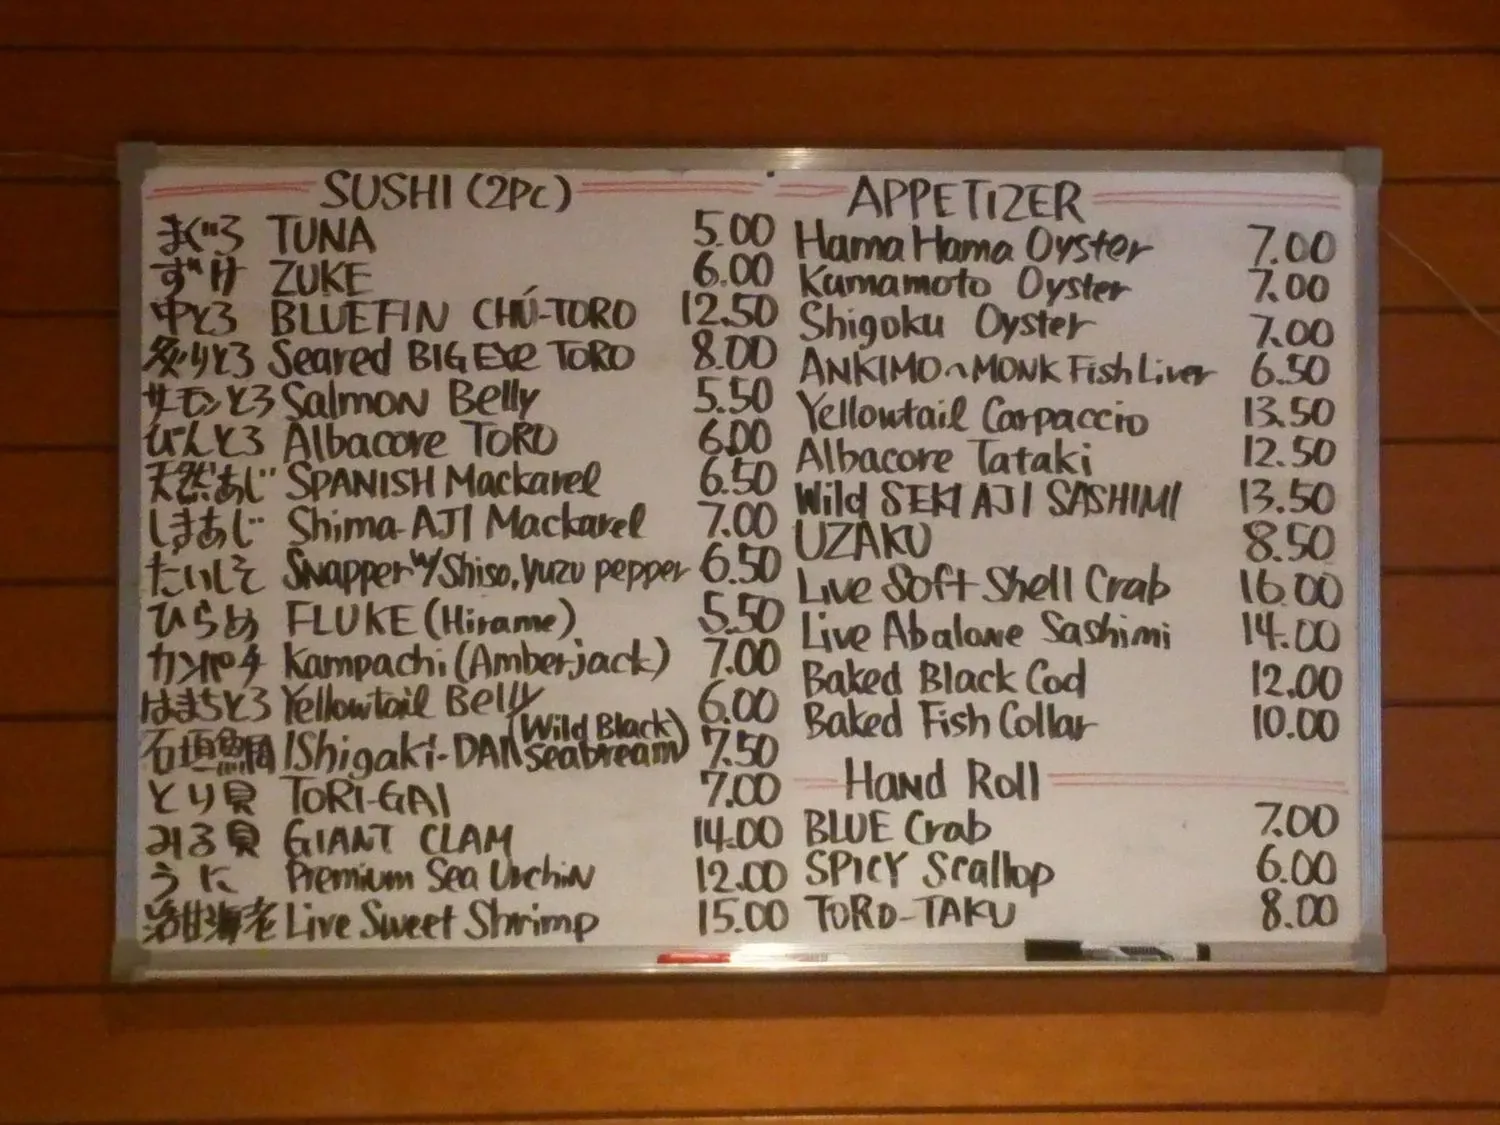 SUSHI (2PC)
まぐろ TUNA 5.00
ずけ ZUKE 6.00
中とろ BLUEFIN CHÚ-TORO 12.50
炙りとろ Seared BIG EYE TORO 8.00
サーモンとろ Salmon Belly 5.50
びんとろ Albacore TORO 6.00
天然あじ SPANISH Mackarel 6.50
しまあじ Shima-AJI Mackarel 7.00
たいしそ Snapper w/Shiso, yuzu pepper 6.50
ひらめ FLUKE (Hirame) 5.50
カンパチ Kampachi (Amberjack) 7.00
はまちとろ Yellowtail Belly 6.00
石垣鯛 IShigaki-DAI (Wild Black Seabream) 7.50
とり貝 TORI-GAI 7.00
みる貝 GIANT CLAM 14.00
うに Premium Sea Urchin 12.00
活甘海老 Live Sweet Shrimp 15.00
APPETIZER
Hama Hama Oyster 7.00
Kumamoto Oyster 7.00
Shigoku Oyster 7.00
ANKIMO~MONK Fish Liver 6.50
Yellowtail Carpaccio 13.50
Albacore Tataki 12.50
Wild SEKI AJI SASHIMI 13.50
UZAKU 8.50
Live Soft Shell Crab 16.00
Live Abalone Sashimi 14.00
Baked Black Cod 12.00
Baked Fish Collar 10.00
Hand Roll
BLUE Crab 7.00
SPICY Scallop 6.00
TORO-TAKU 8.00